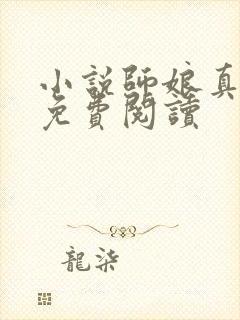 小説師娘真
免費閱讀
龍柒